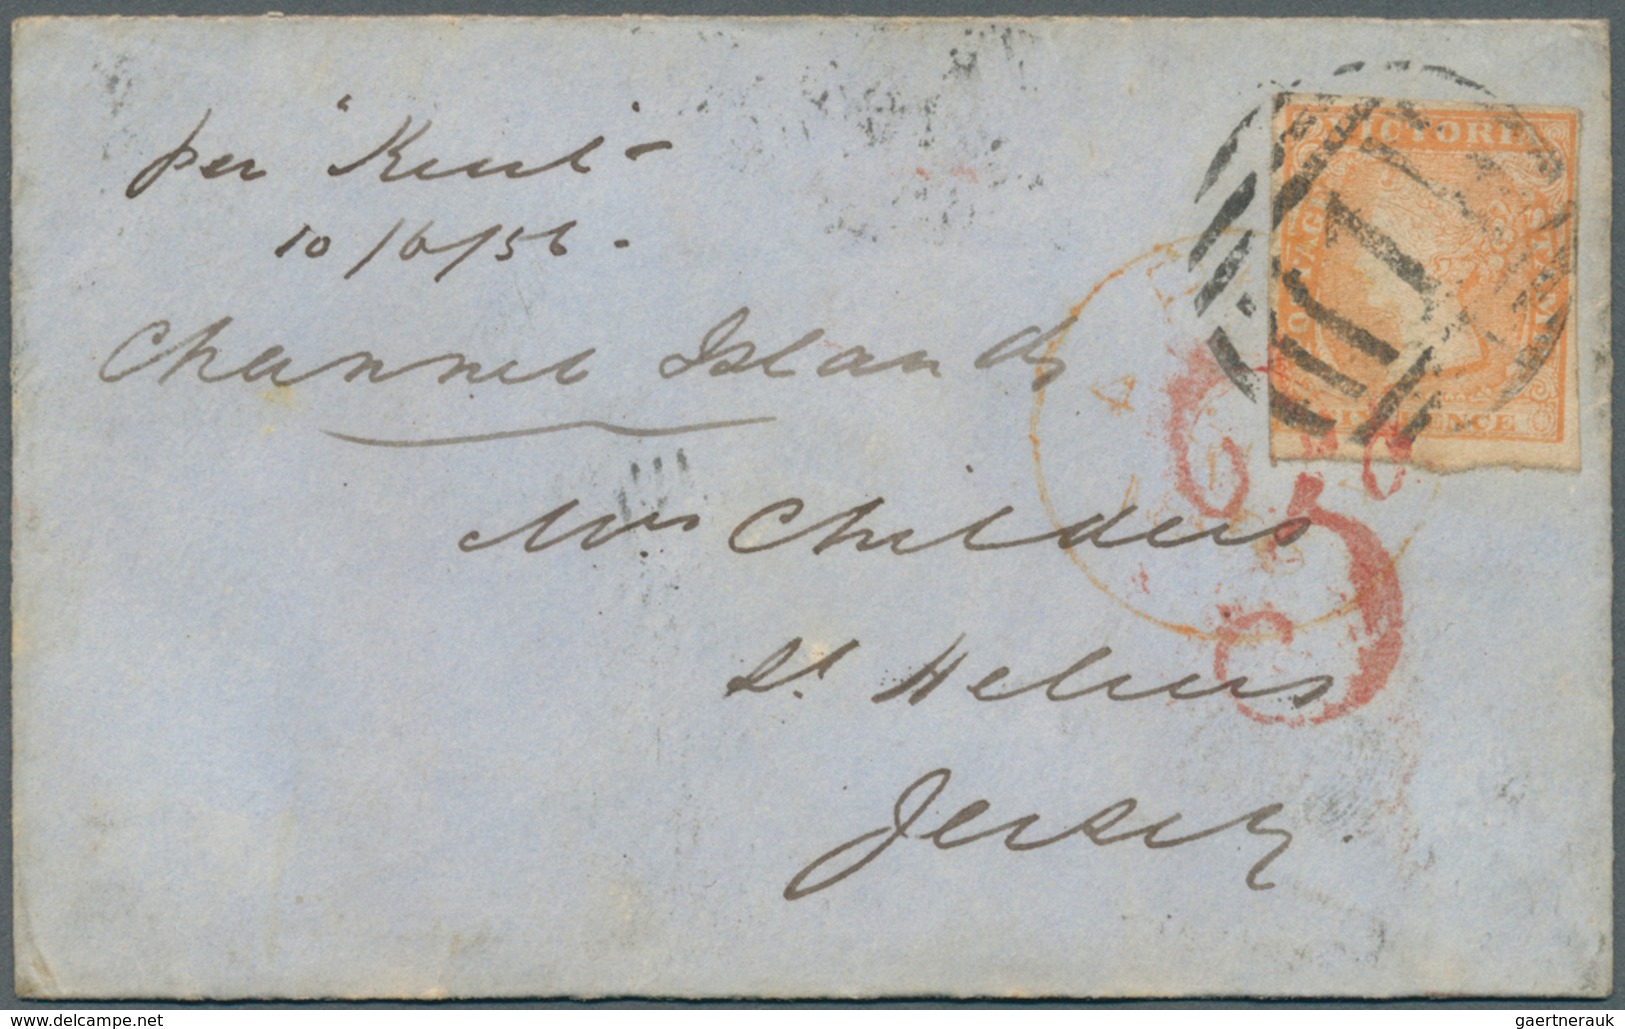 per "Kent"
10/6/56.
Channel Islands
Mrs Childers
St Heliers
Jersey.
VICTORIA
POSTAGE
STAMP
SIX PENCE
3
gaertnerauk